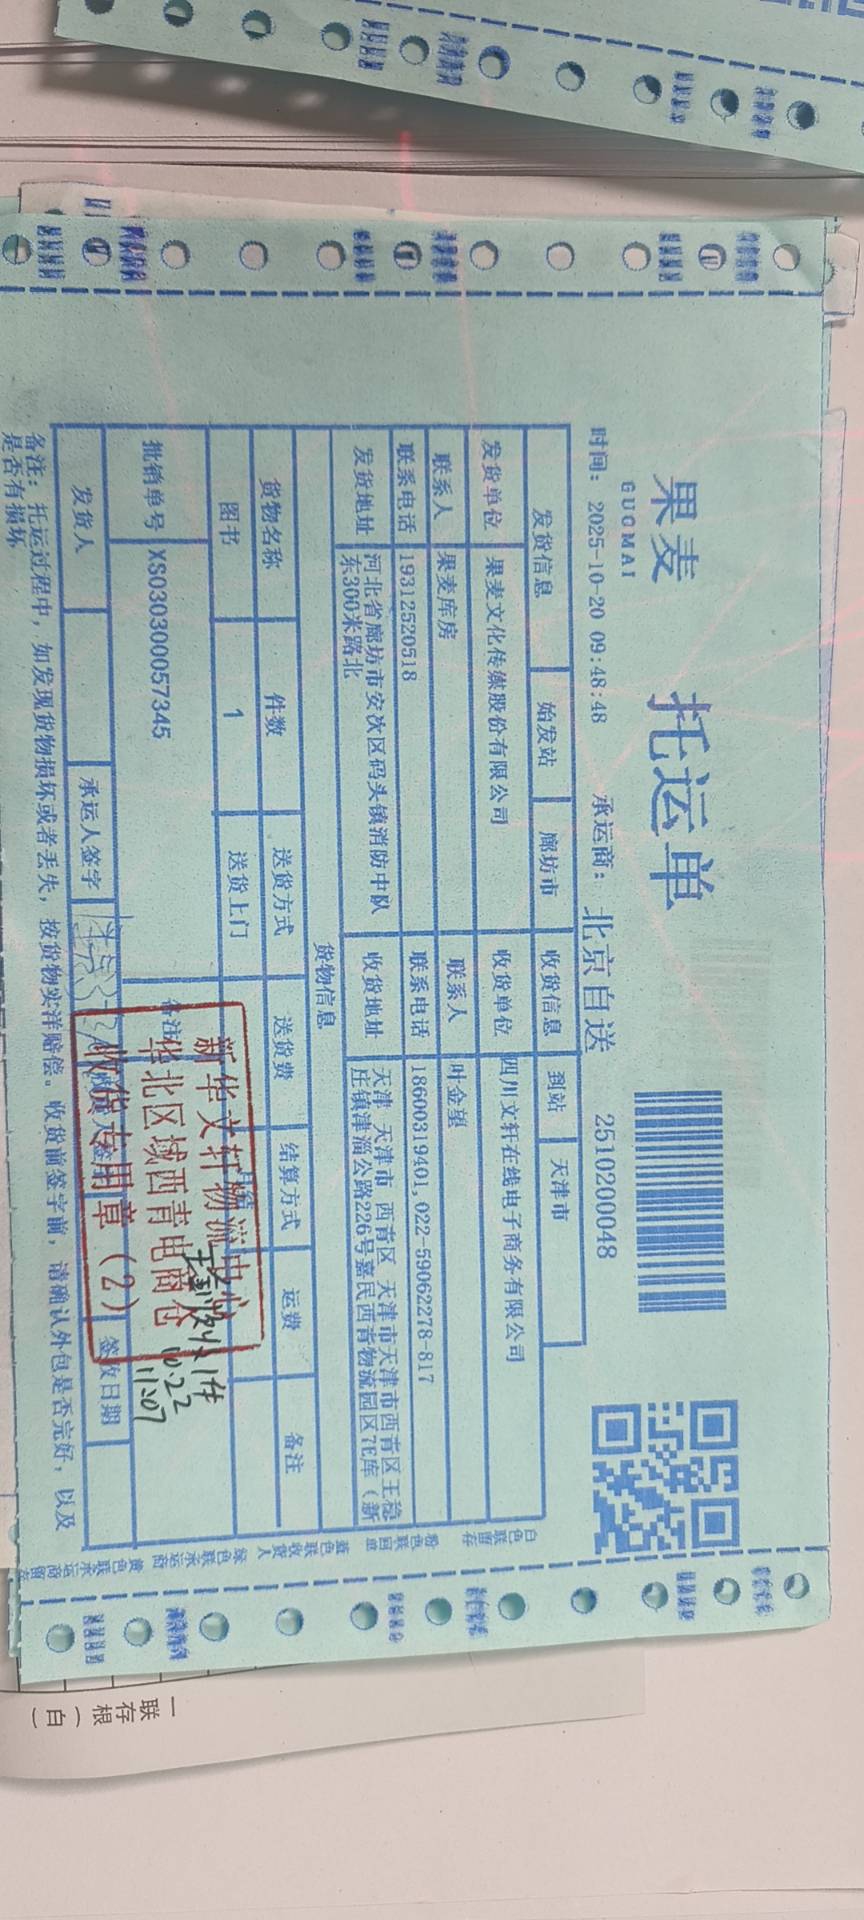 果麦
GUOMAI
托运单
时间: 2025-10-20 09:48:48
承运商: 北京自送
2510200048
发货信息 始发站 廊坊市 收货信息 到站 天津市
发货单位 果麦文化传媒股份有限公司 收货单位 四川文轩在线电子商务有限公司
联系人 果麦库房 联系人 叶金望
联系电话 19312520518 联系电话 18600319401,022-59062278-817
发货地址 河北省廊坊市安次区码头镇消防中队
东300米路北
收货地址 天津 天津市 西青区 天津市天津市西青区王稳
庄镇津淄公路226号嘉民西青物流园区7E库（新
货物信息
货物名称 件数 送货方式 送货费 结算方式 运费 备注
图书 1 送货上门
批销单号 XS030300057345 备注
新华文轩物流
华北区域西青电商仓
收货专用章（2）
收1件
10.22
11:07
发货人 承运人签字 签收日期
备注: 托运过程中，如发现货物损坏或者丢失，按货物实洋赔偿。收货前签字前，请确认外包是否完好，以及
是否有损坏
白色联留存 粉色联回单 蓝色联收货人 绿色联承运商 黄色联承运商留存
一联
存根
（白）